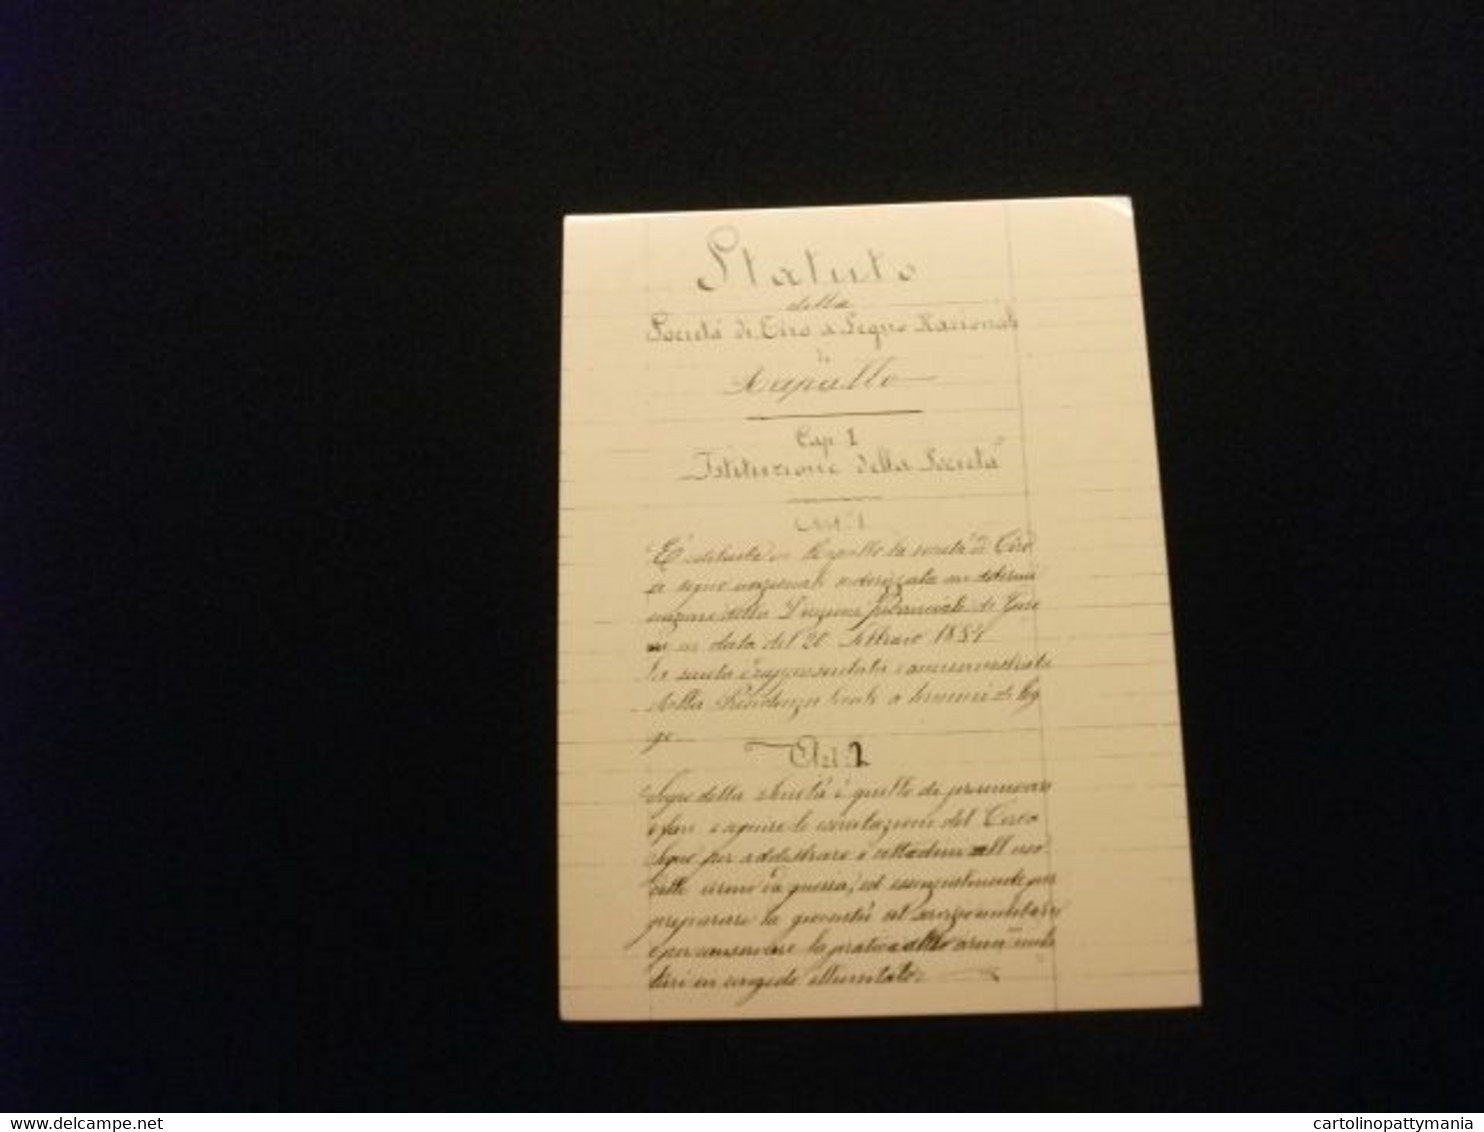 Statuto
della
Società di Tiro a Segno Nazionale
di
Rapallo
Cap. 1
Istituzione della Società
Art. 1
E' istituita in Rapallo la società di Tiro
a segno nazionale autorizzata con determi
nazione della Direzione Provinciale di
in data del 20 Febbraio 1884
La società è rappresentata e amministrata
dalla Presidenza a termini di leg
ge.
Art: 2
della società è quello di promuovere
e fare eseguire le esercitazioni del Tiro a
Segno per addestrare i cittadini all uso
delle armi da guerra, ed essenzialmente per
preparare la gioventù al servizio militare
e per conservare la pratica delle armi nei mili
tari in congedo illimitato.
delcampe.net
cartolinopattymania